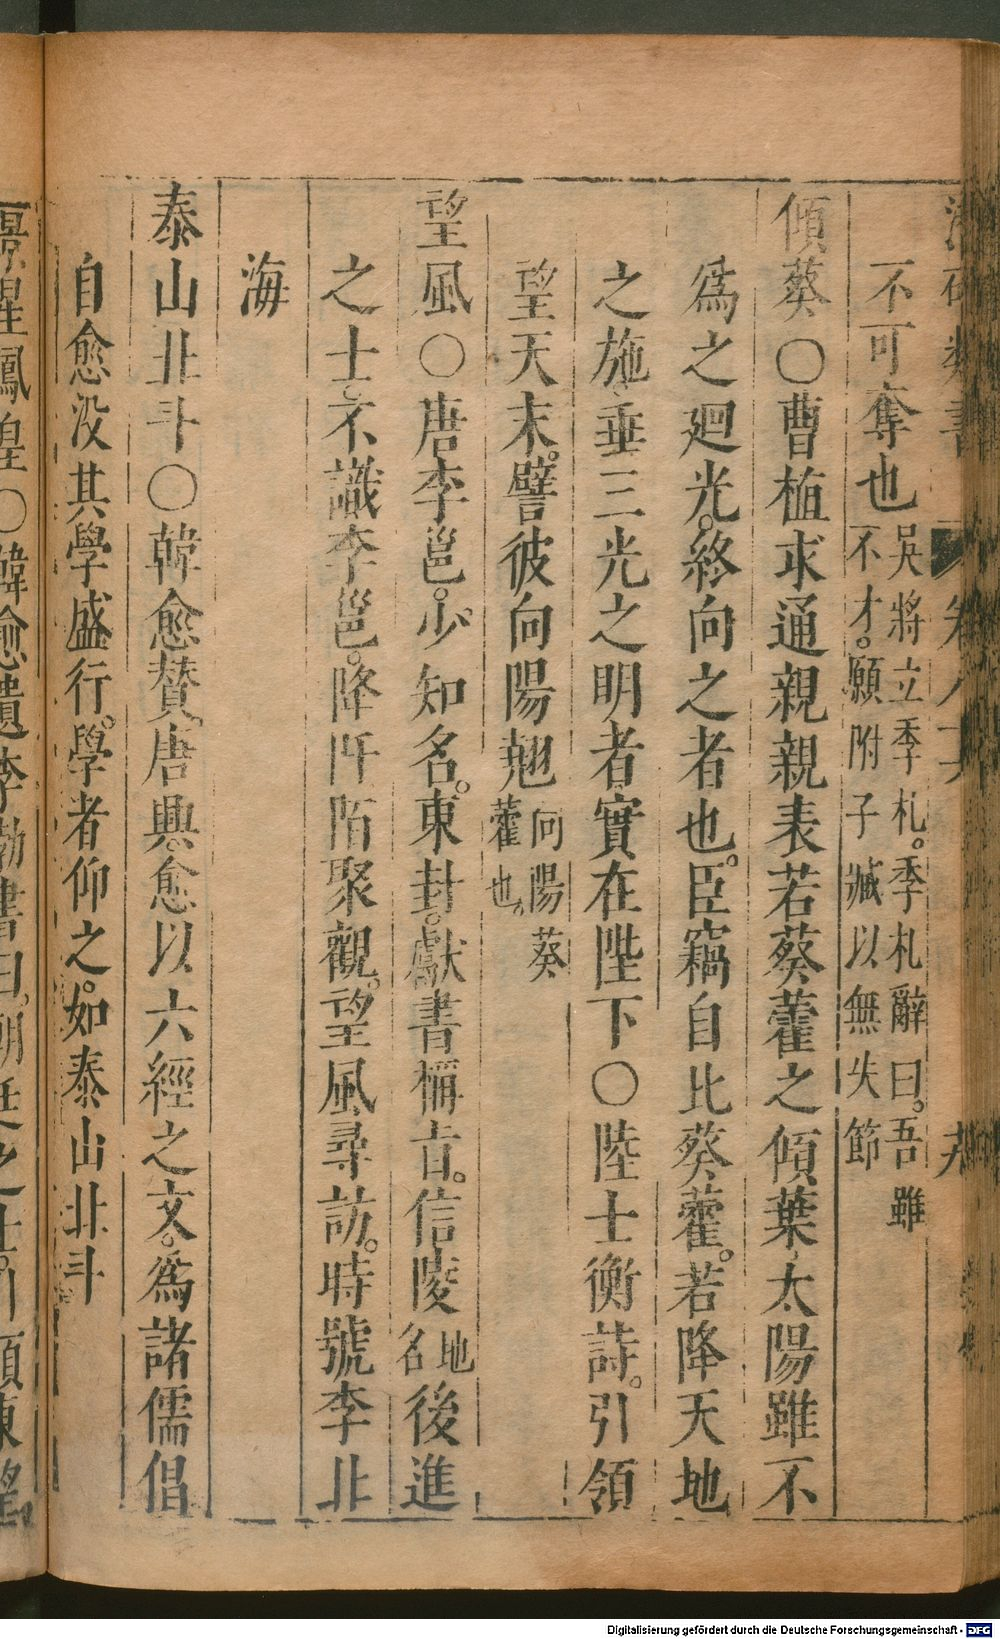 不可奪也吳將立季札。季札辭曰。吾雖不才。願附子臧以無失節
傾葵〇曹植求通親親表若葵藿之傾葉太陽雖不
爲之廻光。終向之者也。臣竊自比葵藿。若降天地
之施垂三光之明者實在陛下〇陸士衡詩。引領
望天末。譬彼向陽翹向陽葵藿也。
望風〇唐李邕。少知名。東封。獻書稱旨。信陵地名後進
之士不識李邕。降阡陌聚觀。望風尋訪。時號李北
海
泰山北斗〇韓愈贊唐興愈以六經之文。爲諸儒倡
自愈没其學盛行。學者仰之。如泰山北斗
景星鳳凰〇韓愈遺李渤書曰。朝廷之士。引頸東望
Digitalisierung gefördert durch die Deutsche Forschungsgemeinschaft - DFG